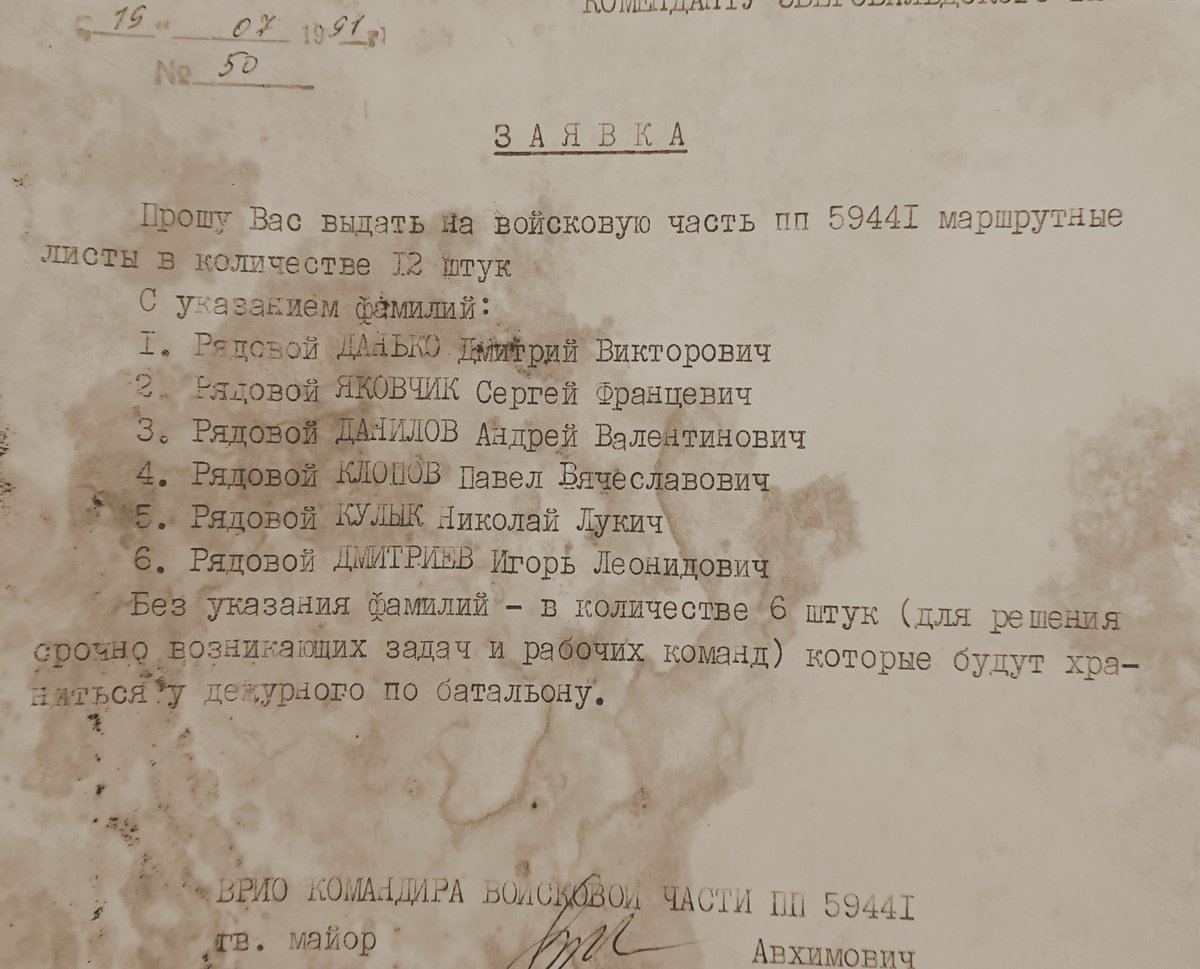 КОМЕНДАНТУ ЭБЕРСВАЛЬДСКОГО
"19" 07 1991 г.
№ 50
ЗАЯВКА
Прошу Вас выдать на войсковую часть пп 5944I маршрутные
листы в количестве I2 штук
С указанием фамилий:
I. Рядовой ДАНЬКО Дмитрий Викторович
2. Рядовой ЯКОВЧИК Сергей Францевич
3. Рядовой ДАНИЛОВ Андрей Валентинович
4. Рядовой КЛОПОВ Павел Вячеславович
5. Рядовой КУЛЫК Николай Лукич
6. Рядовой ДМИТРИЕВ Игорь Леонидович
Без указания фамилий - в количестве 6 штук (для решения
срочно возникающих задач и рабочих команд) которые будут хра-
ниться у дежурного по батальону.
ВРИО КОМАНДИРА ВОЙСКОВОЙ ЧАСТИ ПП 5944I
гв. майор Авхимович